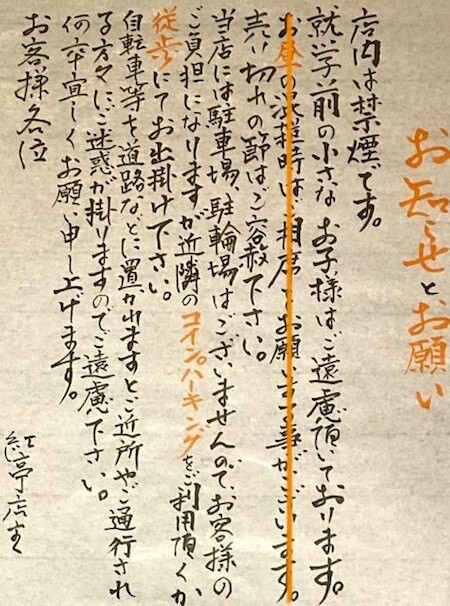 お知らせとお願い
店内は禁煙です。
就学前の小さなお子様はご遠慮頂いております。
お昼の混雑時はご相席をお願いする事がございます。
売り切れの節はご容赦下さい。
当店には駐車場、駐輪場はございませんので、お客様の
ご負担になりますが近隣のコインパーキングをご利用頂くか
徒歩にてお出掛け下さい。
自転車等を道路などに置かれますとご近所やご通行され
る方々にご迷惑が掛りますのでご遠慮下さい。
何卒宜しくお願い申し上げます。
お客様各位
紅亭店主